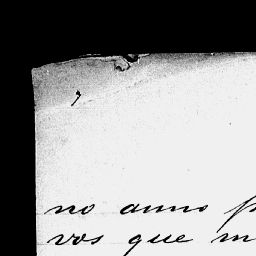 no anno
vos que